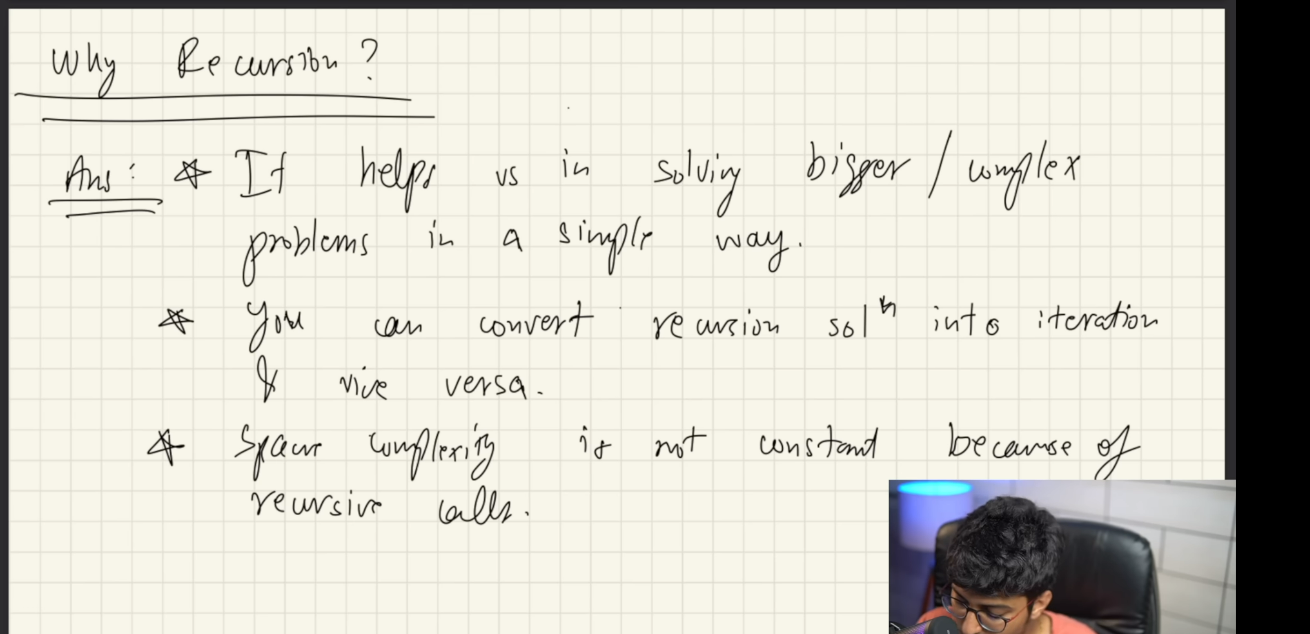 Why Recursion?
Ans: * It helps us in solving bigger / complex
problems in a simple way.
* You can convert recursion solⁿ into iteration
& vice versa.
* Space complexity is not constant because of
recursive calls.